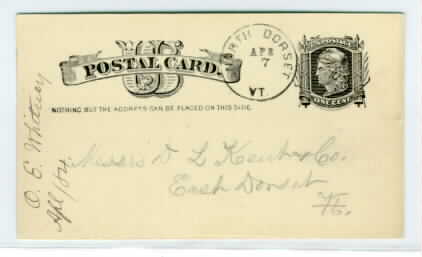 US
POSTAL CARD.
NORTH DORSET
APR
7
VT.
U.S. POSTAGE
ONE CENT
NOTHING BUT THE ADDRESS CAN BE PLACED ON THIS SIDE.
Messrs D L Kent & Co.
East Dorset
Vt.
O. E. Whitney
Apl /84